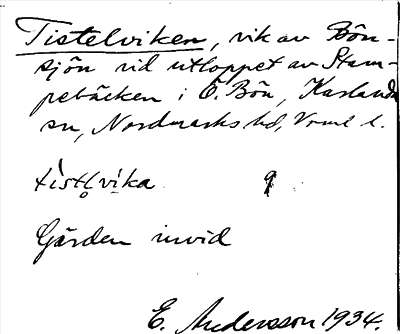 Tistelviken, vik av Bön-
sjön vid utloppet av Stam-
pebäcken i Ö. Bön, Karlanda
sn, Nordmarks hd, Vrml l.
tìstl̥vi̥ka
Gården invid
E. Andersson 1934.